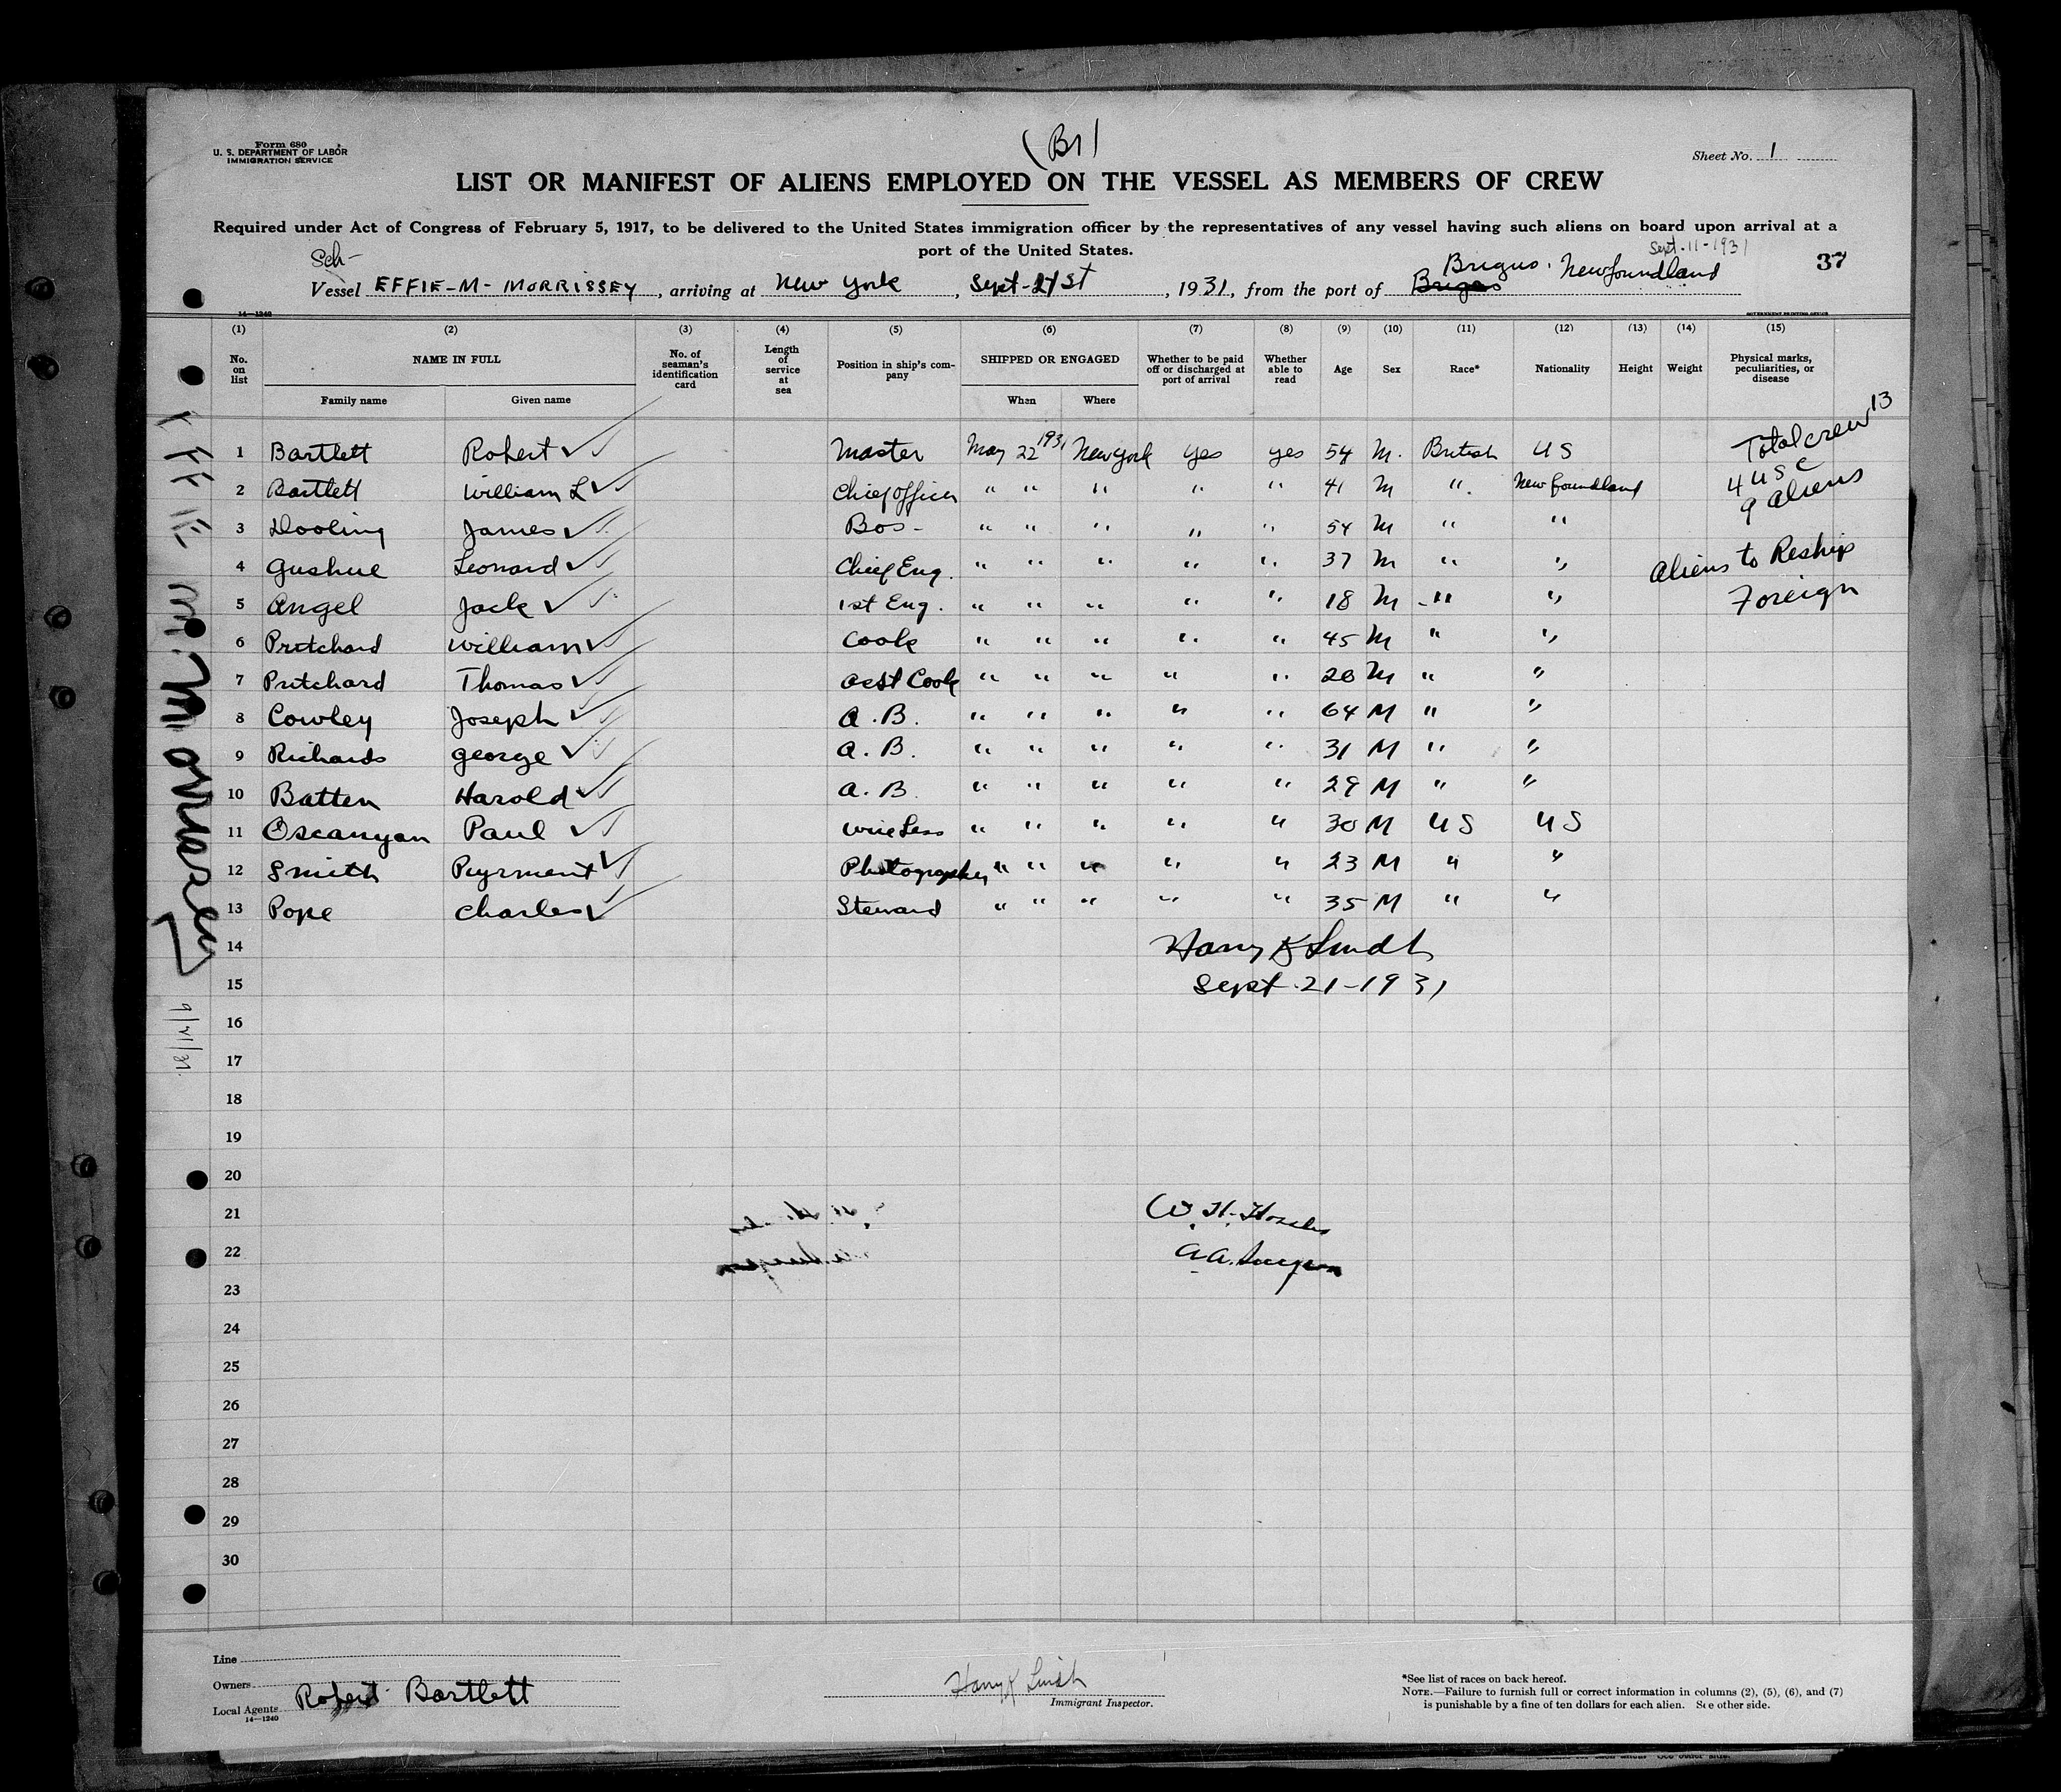 Form 680
U. S. DEPARTMENT OF LABOR
IMMIGRATION SERVICE
(B1)
Sheet No. 1
LIST OR MANIFEST OF ALIENS EMPLOYED ON THE VESSEL AS MEMBERS OF CREW
Required under Act of Congress of February 5, 1917, to be delivered to the United States immigration officer by the representatives of any vessel having such aliens on board upon arrival at a
port of the United States.
Sept. 11-1931
Sch-
37
Vessel EFFIE-M-MORRISSEY, arriving at New York, Sept-21st, 1931, from the port of Brigus Brigus. Newfoundland
14—1240
GOVERNMENT PRINTING OFFICE
(1) (2) (3) (4) (5) (6) (7) (8) (9) (10) (11) (12) (13) (14) (15)
No. on list NAME IN FULL No. of seaman's identification card Length of service at sea Position in ship's company SHIPPED OR ENGAGED Whether to be paid off or discharged at port of arrival Whether able to read Age Sex Race* Nationality Height Weight Physical marks, peculiarities, or disease
Family name Given name When Where
1 Bartlett Robert ✓ Master May 22 1931 New York yes yes 54 M. British US Total crew 13
2 Bartlett William L ✓ Chief officer " " " " " 41 M " Newfoundland 4 USC
9 aliens
3 Dooling James ✓ Bos- " " " " " 54 M " "
4 Gushue Leonard ✓ Chief Eng. " " " " " 37 M " " Aliens to Reship
5 Angel Jack ✓ 1st Eng. " " " " " 18 M " " Foreign
6 Pritchard William ✓ Cook " " " " " 45 M " "
7 Pritchard Thomas ✓ Asst Cook " " " " " 20 M " "
8 Cowley Joseph ✓ A.B. " " " " " 64 M " "
9 Richards George ✓ A.B. " " " " " 31 M " "
10 Batten Harold ✓ A.B. " " " " " 29 M " "
11 Oscanyan Paul ✓ Wireless " " " " " 30 M US US
12 Smith ✓ Photographer " " " " " 23 M " "
13 Pope Charles ✓ Steward " " " " " 35 M " "
14 Harry K
15 Sept-21-1931
16
17
18
19
20
21 W. H.
22 A.A. Surgeon
23
24
25
26
27
28
29
30
Effie M. Morrissey
9/21/31.
Line
Owners
Local Agents Robert Bartlett
14—1240
Harry K
Immigrant Inspector.
*See list of races on back hereof.
NOTE.—Failure to furnish full or correct information in columns (2), (5), (6), and (7)
is punishable by a fine of ten dollars for each alien. See other side.